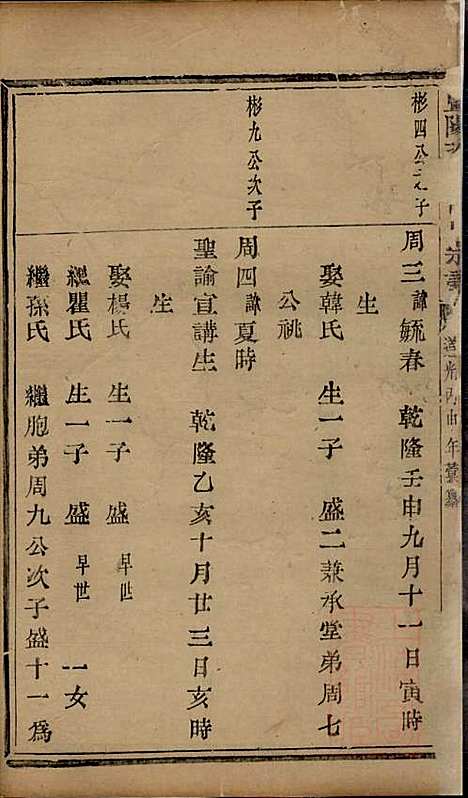 彬四公之子
周三諱毓春 乾隆壬申九月十一日寅時
生
娶韓氏 生一子 盛二兼承堂弟周七
公祧
彬九公次子
周四諱夏時
聖諭宣講生 乾隆乙亥十月廿三日亥時
生
娶楊氏 生一子 盛 早世
繼瞿氏 生一子 盛 早世 一女
繼孫氏 繼胞弟周九公次子盛十一為